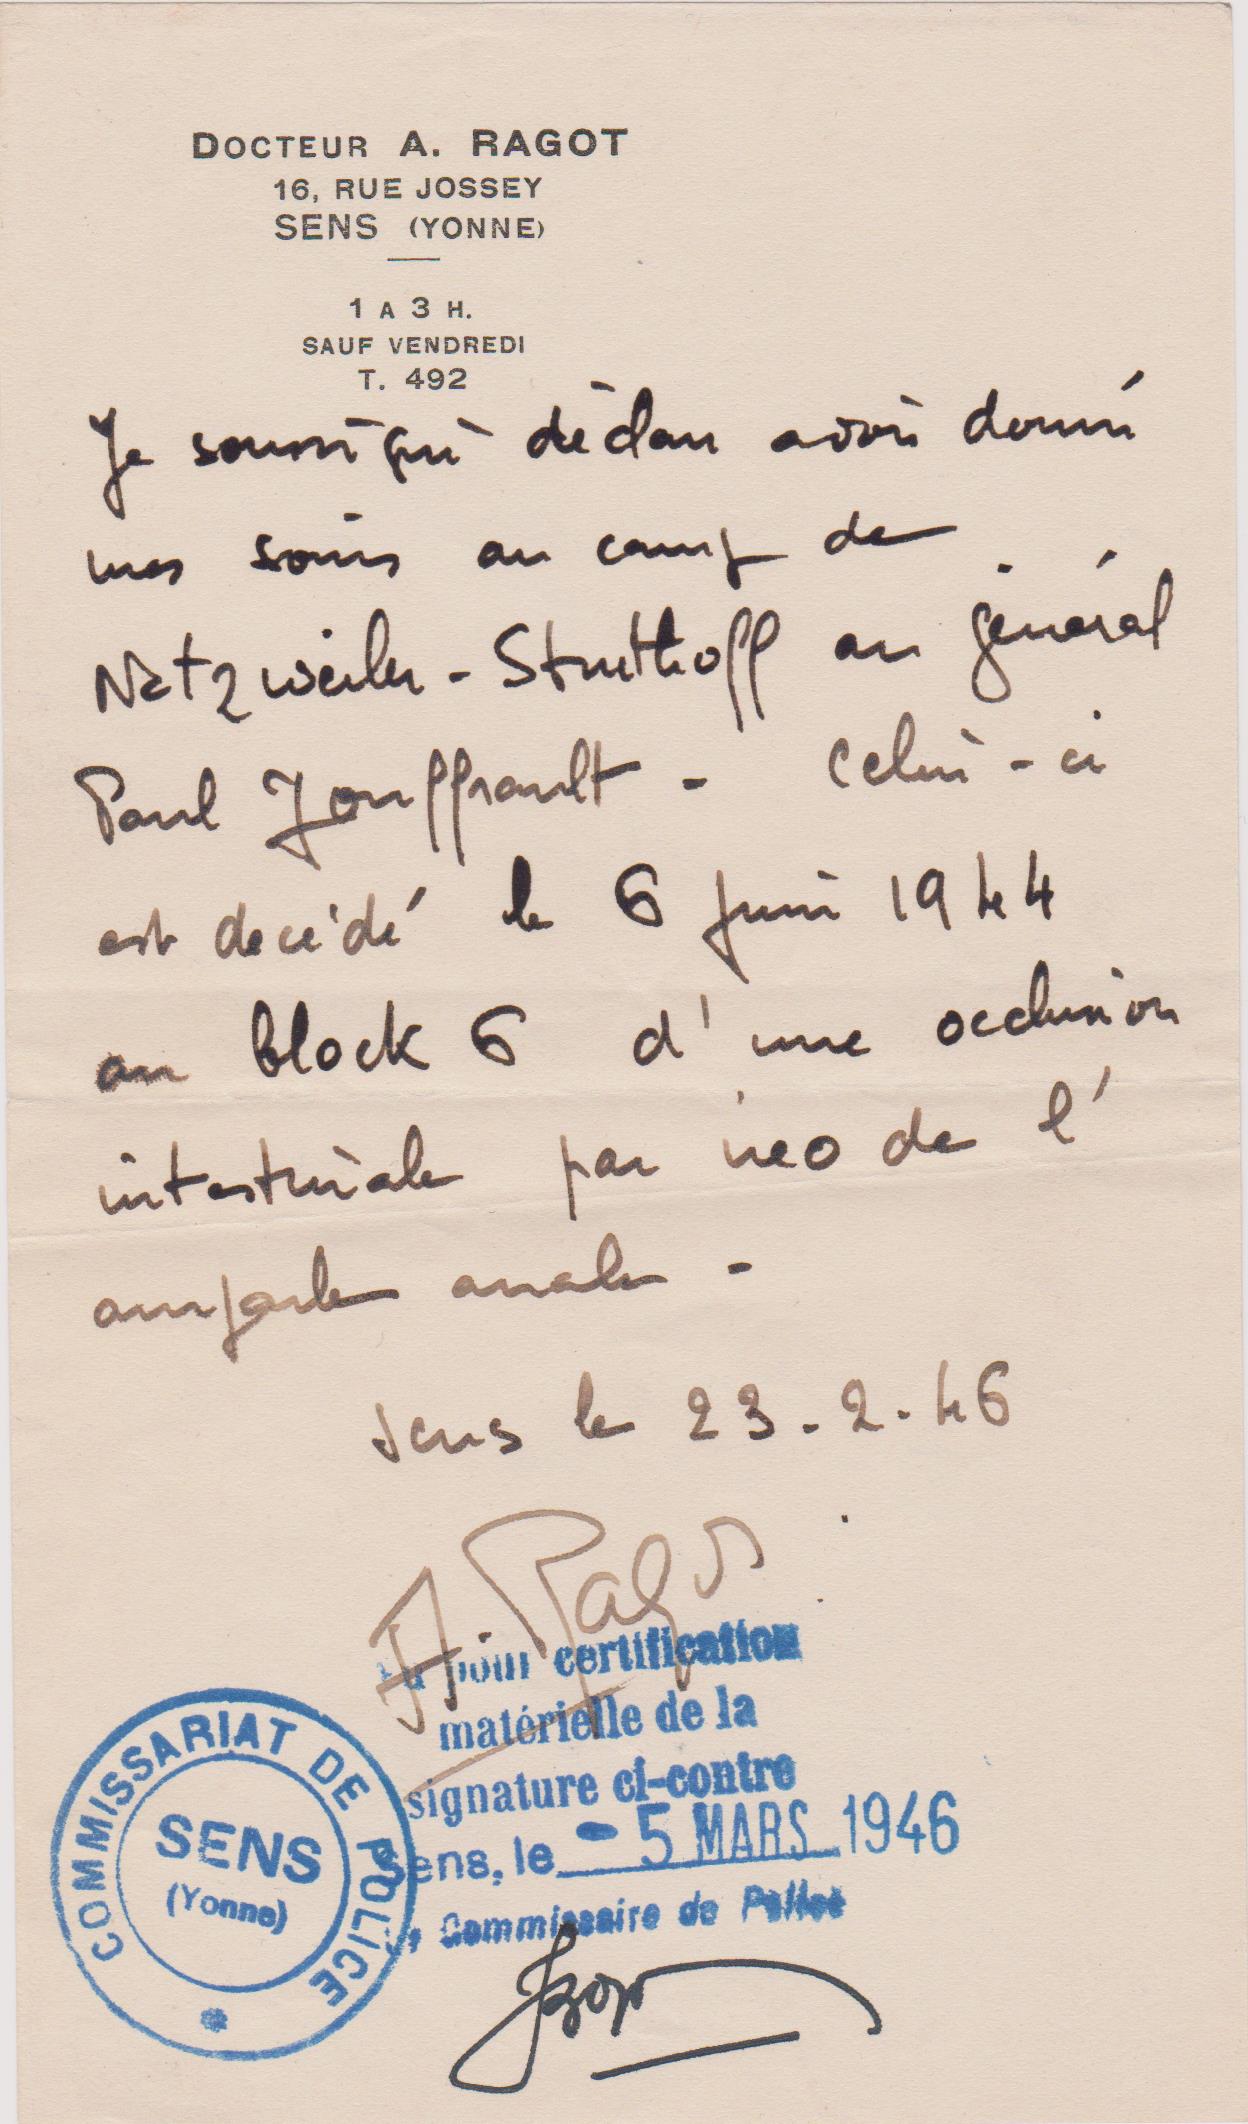 DOCTEUR A. RAGOT
16, RUE JOSSEY
SENS (YONNE)
1 A 3 H.
SAUF VENDREDI
T. 492
Je soussigné déclare avoir donné
mes soins au camp de
Natzweiler - Struthoff au général
Paul Jouffrault - Celui-ci
est decédé le 6 juin 1944
au block 6 d'une occlusion
intestinale par neo de l'
ampoule anale -
Sens le 23-2-46
A. Ragot
Vu pour certification
matérielle de la
signature ci-contre
Sens, le - 5 MARS 1946
Commissaire de Police
COMMISSARIAT DE POLICE
SENS
(Yonne)